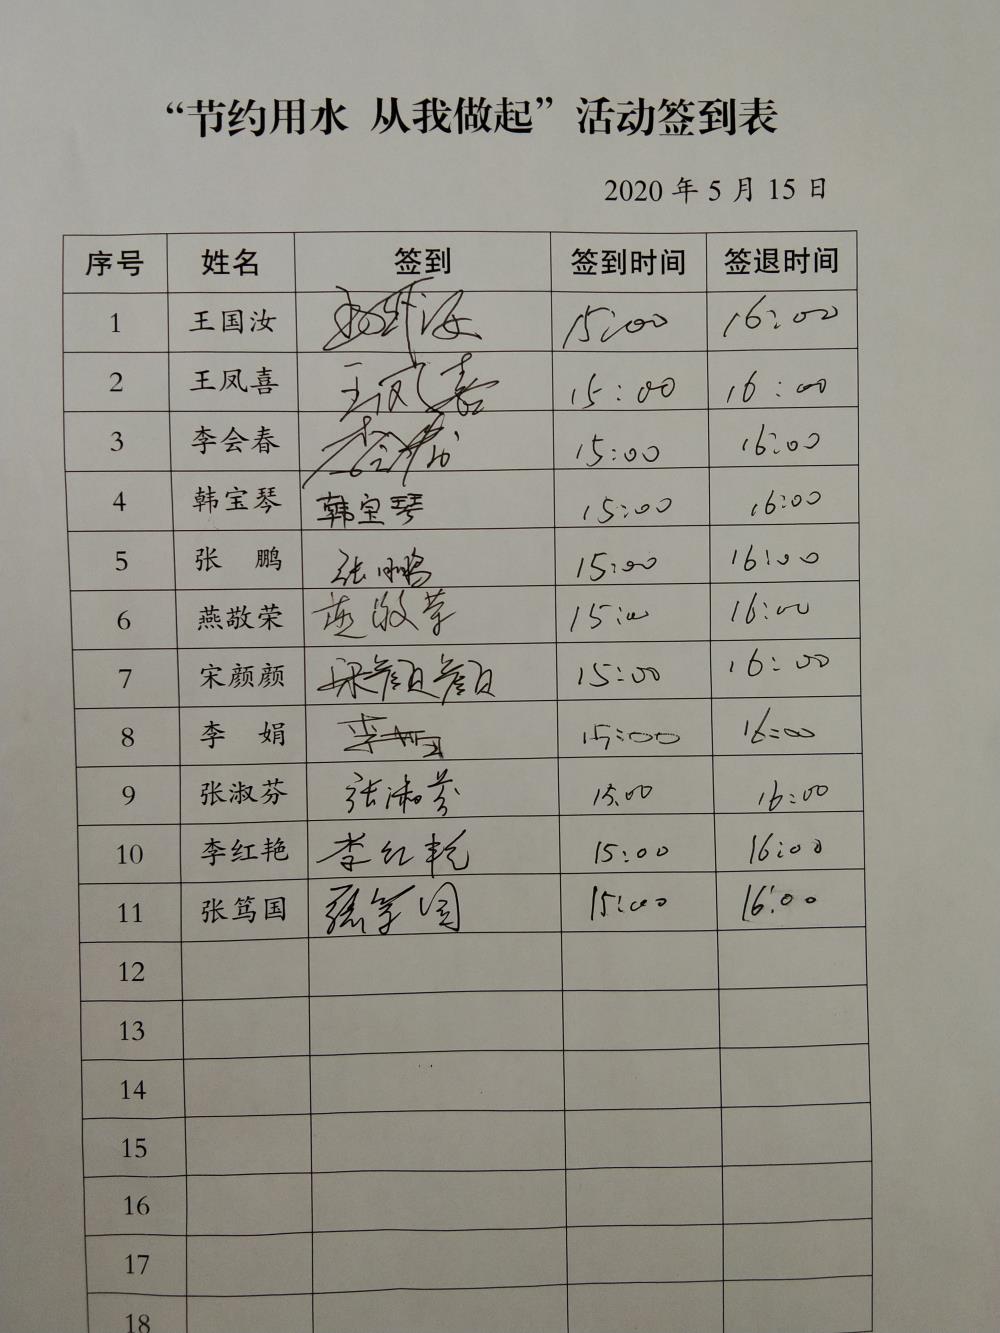 “节约用水 从我做起”活动签到表
2020 年 5 月 15 日
序号 姓名 签到 签到时间 签退时间
1 王国汝 15:00 16:00
2 王凤喜 王凤喜 15:00 16:00
3 李会春 李会春 15:00 16:00
4 韩宝琴 韩宝琴 15:00 16:00
5 张 鹏 张鹏 15:00 16:00
6 燕敬荣 燕敬荣 15:00 16:00
7 宋颜颜 宋颜颜 15:00 16:00
8 李 娟 李娟 15:00 16:00
9 张淑芬 张淑芬 15:00 16:00
10 李红艳 李红艳 15:00 16:00
11 张笃国 张笃国 15:00 16:00
12
13
14
15
16
17
18